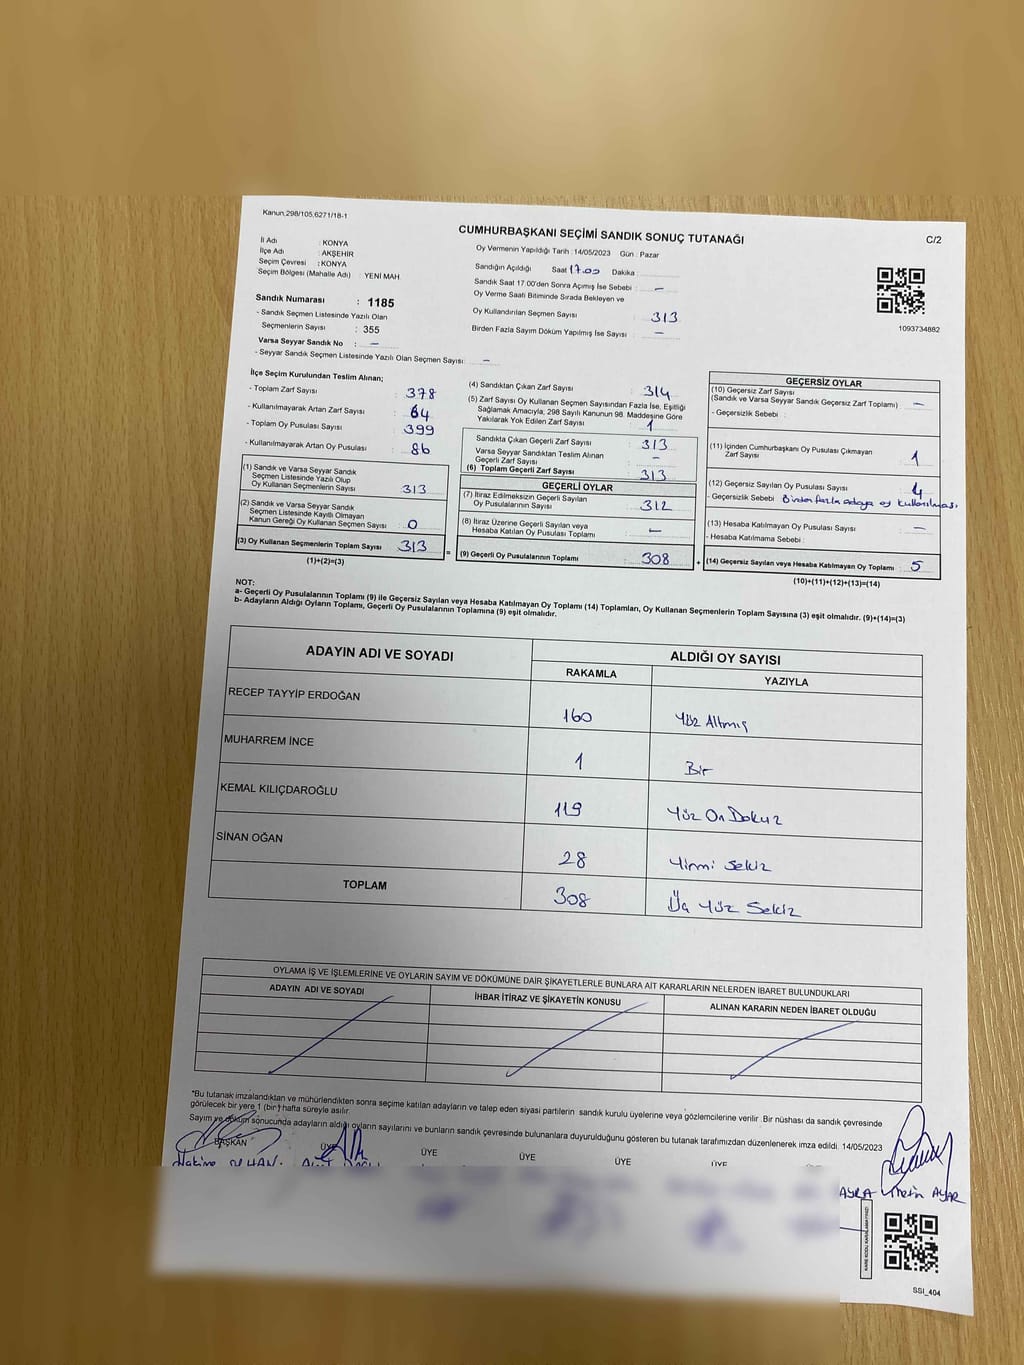 Kanun.298/105,6271/18-1
CUMHURBAŞKANI SEÇİMİ SANDIK SONUÇ TUTANAĞI
C/2
İl Adı : KONYA
İlçe Adı : AKŞEHİR
Seçim Çevresi : KONYA
Seçim Bölgesi (Mahalle Adı) : YENİ MAH.
Sandık Numarası : 1185
- Sandık Seçmen Listesinde Yazılı Olan
Seçmenlerin Sayısı : 355
Varsa Seyyar Sandık No : -
- Seyyar Sandık Seçmen Listesinde Yazılı Olan Seçmen Sayısı: -
Oy Vermenin Yapıldığı Tarih : 14/05/2023 Gün : Pazar
Sandığın Açıldığı Saat 17.00 Dakika :
Sandık Saat 17:00'den Sonra Açımış İse Sebebi : -
Oy Verme Saati Bitiminde Sırada Bekleyen ve
Oy Kullandırılan Seçmen Sayısı : 313
Birden Fazla Sayım Döküm Yapılmış İse Sayısı : -
1093734882
İlçe Seçim Kurulundan Teslim Alınan;
- Toplam Zarf Sayısı : 378
- Kullanılmayarak Artan Zarf Sayısı : 64
- Toplam Oy Pusulası Sayısı : 399
- Kullanılmayarak Artan Oy Pusulası : 86
(1) Sandık ve Varsa Seyyar Sandık
Seçmen Listesinde Yazılı Olup
Oy Kullanan Seçmenlerin Sayısı : 313
(2) Sandık ve Varsa Seyyar Sandık
Seçmen Listesinde Kayıtlı Olmayan
Kanun Gereği Oy Kullanan Seçmen Sayısı : 0
(3) Oy Kullanan Seçmenlerin Toplam Sayısı : 313
(1)+(2)=(3)
=
(4) Sandıktan Çıkan Zarf Sayısı : 314
(5) Zarf Sayısı Oy Kullanan Seçmen Sayısından Fazla İse, Eşitliği
Sağlamak Amacıyla, 298 Sayılı Kanunun 98. Maddesine Göre
Yakılarak Yok Edilen Zarf Sayısı : 1
Sandıkta Çıkan Geçerli Zarf Sayısı : 313
Varsa Seyyar Sandıktan Teslim Alınan
Geçerli Zarf Sayısı : -
(6) Toplam Geçerli Zarf Sayısı : 313
GEÇERLİ OYLAR
(7) İtiraz Edilmeksizin Geçerli Sayılan
Oy Pusulalarının Sayısı : 312
(8) İtiraz Üzerine Geçerli Sayılan veya
Hesaba Katılan Oy Pusulaları Toplamı : -
(9) Geçerli Oy Pusulalarının Toplamı : 308
+
GEÇERSİZ OYLAR
(10) Geçersiz Zarf Sayısı
(Sandık ve Varsa Seyyar Sandık Geçersiz Zarf Toplamı) : -
- Geçersizlik Sebebi :
(11) İçinden Cumhurbaşkanı Oy Pusulası Çıkmayan
Zarf Sayısı : 1
(12) Geçersiz Sayılan Oy Pusulası Sayısı : 4
- Geçersizlik Sebebi : Birden fazla adaya oy kullanılması
(13) Hesaba Katılmayan Oy Pusulası Sayısı : -
- Hesaba Katılmama Sebebi :
(14) Geçersiz Sayılan veya Hesaba Katılmayan Oy Toplamı : 5
(10)+(11)+(12)+(13)=(14)
NOT:
a- Geçerli Oy Pusulalarının Toplamı (9) ile Geçersiz Sayılan veya Hesaba Katılmayan Oy Toplamı (14) Toplamları, Oy Kullanan Seçmenlerin Toplam Sayısına (3) eşit olmalıdır. (9)+(14)=(3)
b- Adayların Aldığı Oyların Toplamı, Geçerli Oy Pusulalarının Toplamına (9) eşit olmalıdır.
ADAYIN ADI VE SOYADI
ALDIĞI OY SAYISI
RAKAMLA YAZIYLA
RECEP TAYYİP ERDOĞAN 160 Yüz Altmış
MUHARREM İNCE 1 Bir
KEMAL KILIÇDAROĞLU 119 Yüz On Dokuz
SİNAN OĞAN 28 Yirmi Sekiz
TOPLAM 308 Üç Yüz Sekiz
OYLAMA İŞ VE İŞLEMLERİNE VE OYLARIN SAYIM VE DÖKÜMÜNE DAİR ŞİKAYETLERLE BUNLARA AİT KARARLARIN NELERDEN İBARET BULUNDUKLARI
ADAYIN ADI VE SOYADI İHBAR İTİRAZ VE ŞİKAYETİN KONUSU ALINAN KARARIN NEDEN İBARET OLDUĞU
*Bu tutanak imzalandıktan ve mühürlendikten sonra seçime katılan adayların ve talep eden siyasi partilerin sandık kurulu üyelerine veya gözlemcilerine verilir. Bir nüshası da sandık çevresinde
görülecek bir yere 1 (bir) hafta süreyle asılır.
Sayım ve döküm sonucunda adayların aldığı oyların sayılarını ve bunların sandık çevresinde bulunanlara duyurulduğunu gösteren bu tutanak tarafımızdan düzenlenerek imza edildi. 14/05/2023
BAŞKAN ÜYE ÜYE ÜYE ÜYE ÜYE
Metin AYAR
SSI_404